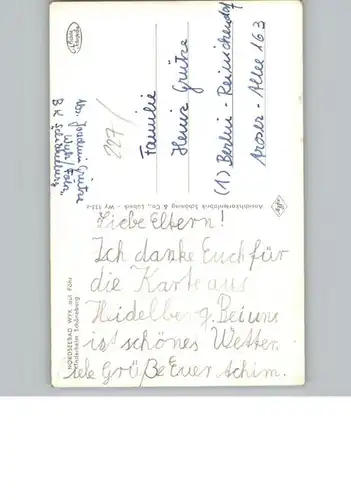 Liebe Eltern!
Ich danke Euch für
die Karte aus
Heidelberg. Bei uns
ist schönes Wetter.
Viele Grüße Euer Achim.
Familie
Heinz Grütze
(1) Berlin-Reinickendorf
Aroser-Allee 163
Abs. Joachim Grütze
Wyk/Föhr,
B.K. Schöneberg
227/
Ansichtskartenfabrik Schöning & Co., Lübeck - Wy
NORDSEEBAD WYK auf FÖHR
Kinderheim Schöneberg